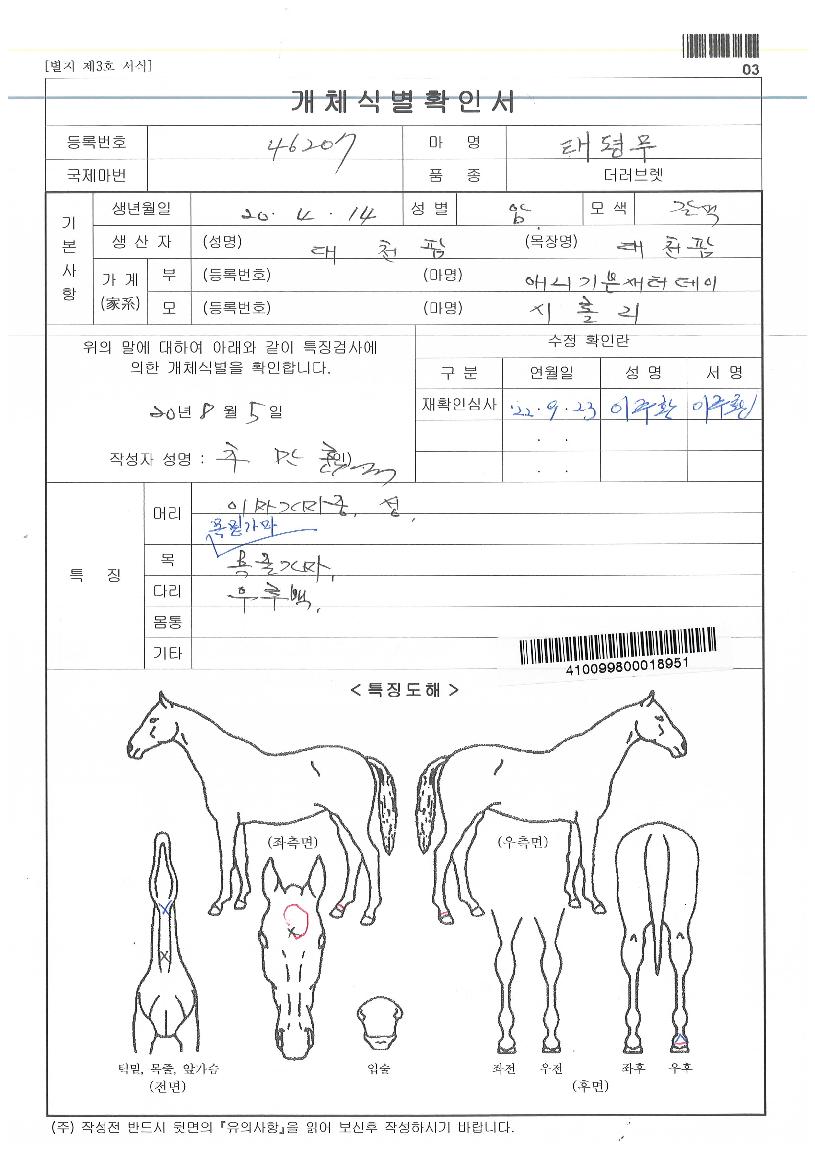 [별지 제3호 서식]
03
개체식별확인서
등록번호 46207 마 명 태령무
국제마번 품 종 더러브렛
기본사항
생년월일 20. 4. 14 성 별 암. 모 색 갈색
생 산 자 (성명) 대천팜 (목장명) 대천팜
가 계 (家系)
부 (등록번호) (마명) 애니기븐새터데이
모 (등록번호) (마명)
위의 말에 대하여 아래와 같이 특징검사에
의한 개체식별을 확인합니다.
20년 8월 5일
작성자 성명 : (인)
수정 확인란
구 분 연월일 성 명 서 명
재확인심사 '22. 9. 23
. .
. .
특 징
머리 이마가마중, 성.
목윗가마
목 목줄가마.
다리 우후백.
몸통
기타
410099800018951
< 특징도해 >
(좌측면) (우측면)
턱밑, 목줄, 앞가슴 입술 좌전 우전 좌후 우후
(전면) (후면)
(주) 작성전 반드시 뒷면의 『유의사항』을 읽어 보신후 작성하시기 바랍니다.